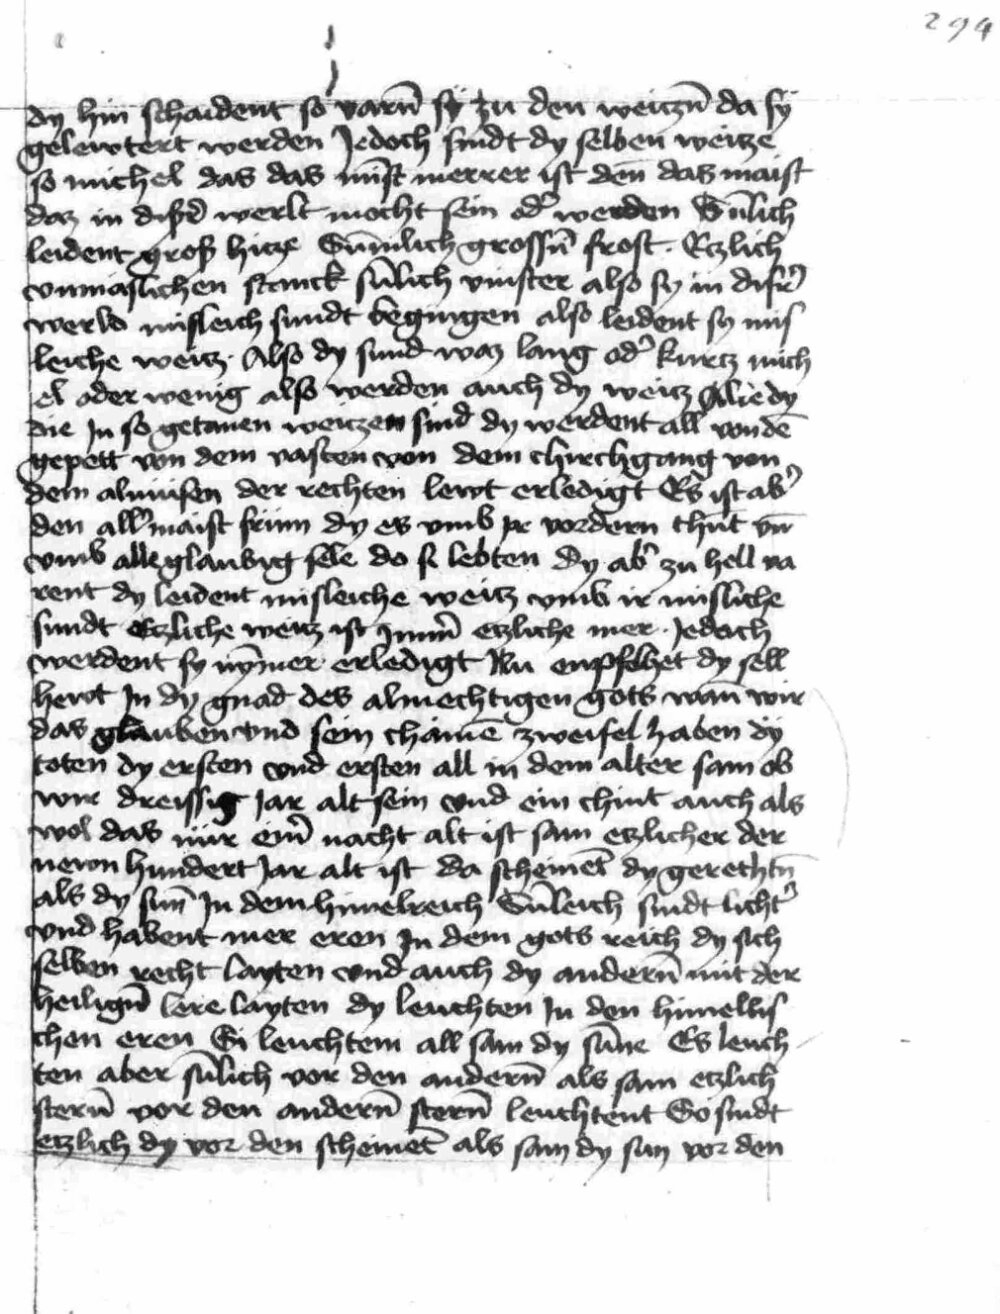 294
dy hin schaident so varn̄ sÿ zu den weiczn̄ da sÿ
gelewtert werden Jedoch sindt dy selben weicze
so michel das das mīst merrer ist den̄ das maist
daz in disẏ werlt mocht sein od' werden Sūlich
leident gross hicze Sūmlich grossn̄ frost. Etzlich
vnmaslichen stanck sūlich vinster also sy in diser
werld misleich sundt begingen also leident sy mis
leiche weicz. Also dy sund waz lang od' kurcz mich
el oder wenig also werden auch dy weicz Alle dy
die Jn so getanen weiczen sind dy werdent all von dē
gepett von dem vasten von dem chirchgang von
dem almusen der rechten lewt erledigt Es ist ab'
den all'maist frum dy es vmb ir vordern thūt vn̄
vmb alle glaubig sele do si lebten dy ab' zu hell va
rent dy leident misleiche weicz vmb ir misliche
sundt Etzliche weicz ist ym̄ etzliche mer. Jedoch
werdent sy nȳmer erledigt Nu enpfelhet dy sell
hewt Jn dy gnad des almechtigen gots wan̄ wir
das glauben vnd sein chainē zweifel haben dÿ
toten dy ersten vnd ersten all in dem alter sam ob
wir dreissig Jar alt sein vnd ein chint auch als
wol das nür ein̄ nacht alt ist sam etzlicher der
newn hundert Jar alt ist da scheinet dy gerechtn̄
als dy sun̄ Jn dem himelreich Sūleich sindt licht'
vnd habent mer eren Jn dem gots reich dy sich
selben recht layten vnd auch dy andern̄ mit der
heilign̄ lere layten dy leuchten Jn den himellis
chen eren Si leuchtent all sam dy sūne Es leuch
ten aber sūlich vor den andern̄ als sam etzlich
stern̄ vor den andern̄ stern̄ leuchtent So sindt
etzlich dy vor den scheinet als sam dy sun vor den